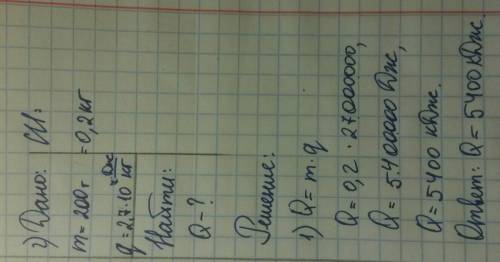 2) Дано: СИ:
m = 200г = 0,2кг
q = 2,7·10⁷ Дж/кг
Найти:
Q - ?
Решение:
1) Q = m·q
Q = 0,2 · 27000000,
Q = 5400000 Дж,
Q = 5400 кДж.
Ответ: Q = 5400кДж.